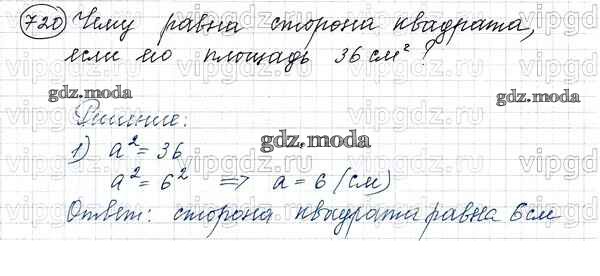 720 Чему равна сторона квадрата,
если его площадь 36 см²?
gdz.moda
gdz.moda
Решение:
gdz.moda
1) a² = 36
a² = 6² => a = 6 (см)
Ответ: сторона квадрата равна 6 см